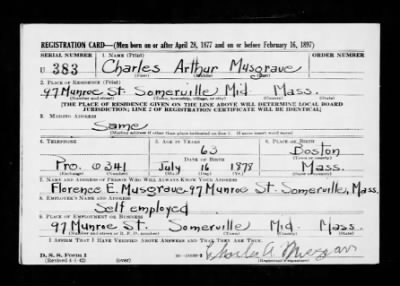 REGISTRATION CARD—(Men born on or after April 28, 1877 and on or before February 16, 1897)
SERIAL NUMBER 1. NAME (Print) ORDER NUMBER
U 383 Charles Arthur Musgrave
(First) (Middle) (Last)
2. PLACE OF RESIDENCE (Print)
97 Munroe St. Somerville Mid. Mass.
(Number and street) (Town, township, village, or city) (County) (State)
[THE PLACE OF RESIDENCE GIVEN ON THE LINE ABOVE WILL DETERMINE LOCAL BOARD
JURISDICTION; LINE 2 OF REGISTRATION CERTIFICATE WILL BE IDENTICAL]
3. MAILING ADDRESS
Same
[Mailing address if other than place indicated on line 2. If same insert word same]
4. TELEPHONE 5. AGE IN YEARS 6. PLACE OF BIRTH
63 Boston
DATE OF BIRTH (Town or county)
Pro. 6341 July 16 1878 Mass.
7. NAME AND ADDRESS OF PERSON WHO WILL ALWAYS KNOW YOUR ADDRESS
Florence E. Musgrave-97 Munroe St. Somerville, Mass.
8. EMPLOYER'S NAME AND ADDRESS
Self employed
9. PLACE OF EMPLOYMENT OR BUSINESS
97 Munroe St. Somerville Mid. Mass.
(Number and street or R. F. D. number) (Town) (County) (State)
I AFFIRM THAT I HAVE VERIFIED ABOVE ANSWERS AND THAT THEY ARE TRUE.
D. S. S. Form 1
(Revised 4-1-42) (over) Charles A Musgrave